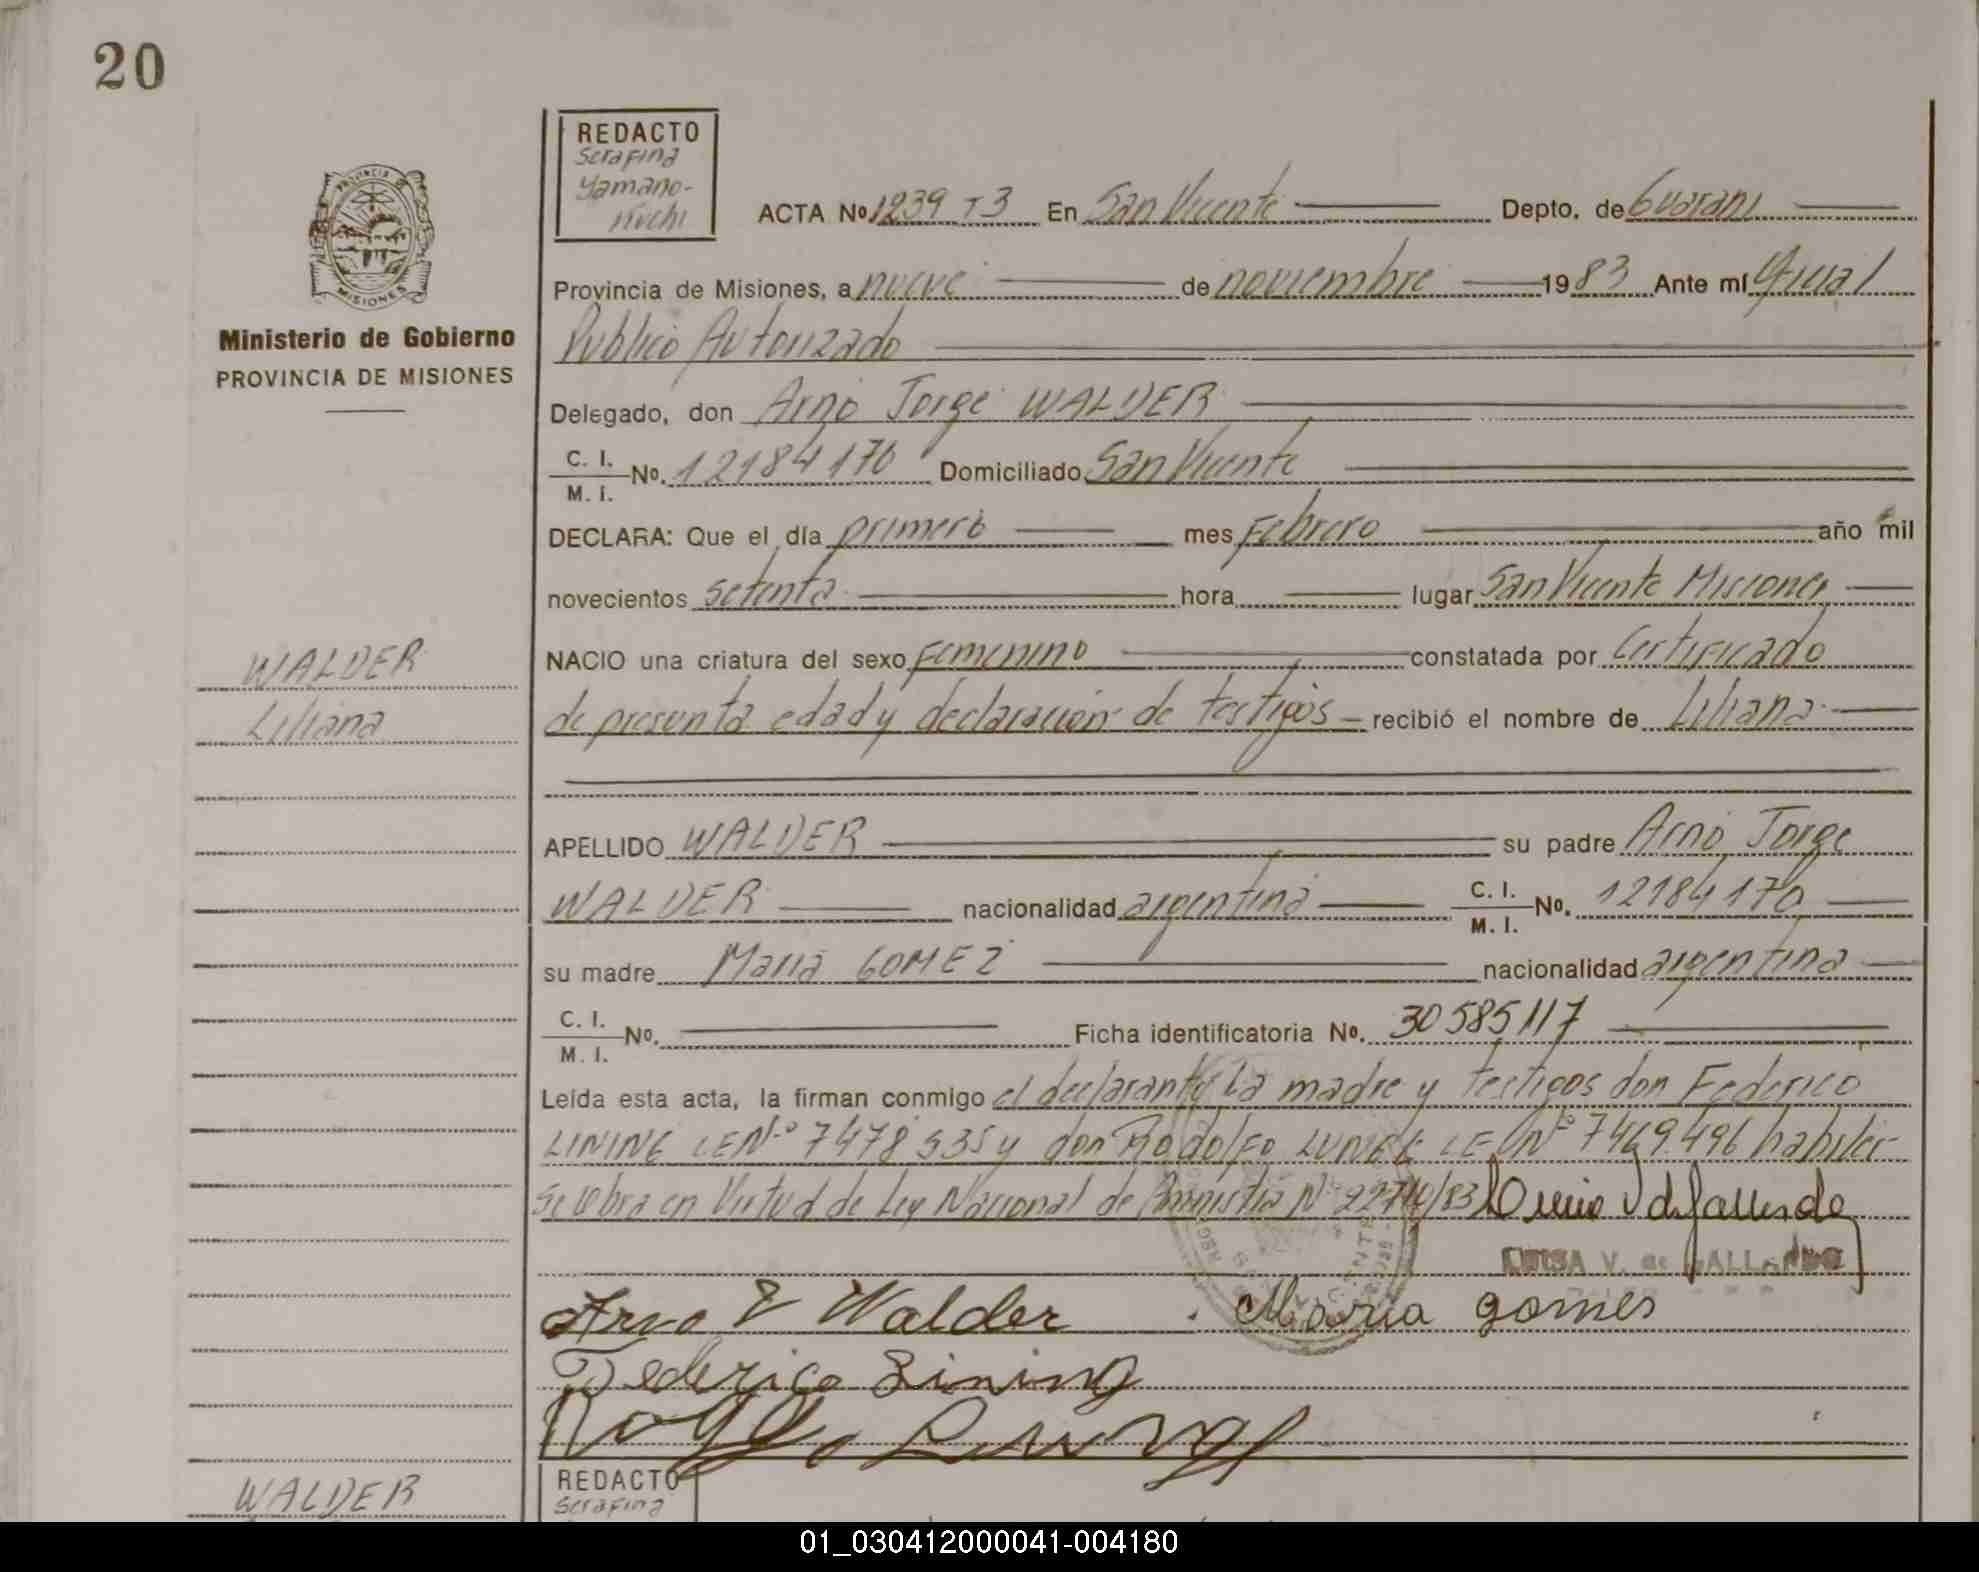 20
REDACTO
Serafina
Yamano-
iñuchi
ACTA No 1239 T3 En San Vicente Depto. de Guarani
PROVINCIA DE
MISIONES
Provincia de Misiones, a nueve de noviembre 1983 Ante mí
Ministerio de Gobierno
PROVINCIA DE MISIONES
Publico Autorizado
Delegado, don Arno Jorge WALDER
C. I.
M. I. No. 12184170 Domiciliado San Vicente
DECLARA: Que el día primero mes Febrero año mil
novecientos setenta hora lugar San Vicente Misiones
WALDER
Liliana
NACIO una criatura del sexo Femenino constatada por Certificado
de presunta edad y declaración de testigos recibió el nombre de Liliana
APELLIDO WALDER su padre Arno Jorge
WALDER nacionalidad argentina C. I.
M. I. No. 12184170
su madre Maria GOMEZ nacionalidad argentina
C. I.
M. I. No. Ficha identificatoria No. 30585117
Leída esta acta, la firman conmigo el declarante, la madre y testigos don Federico
LINING LE Nº 7478535 y don Rodolfo LE Nº 7469.496 habiler
se labra en Virtud de Ley Nacional de Amnistia Nº /83
LUISA V. de GALLARDO
Arno Walder Maria gomes
Federico Lining
WALDER
REDACTO
Serafina
01_030412000041-004180